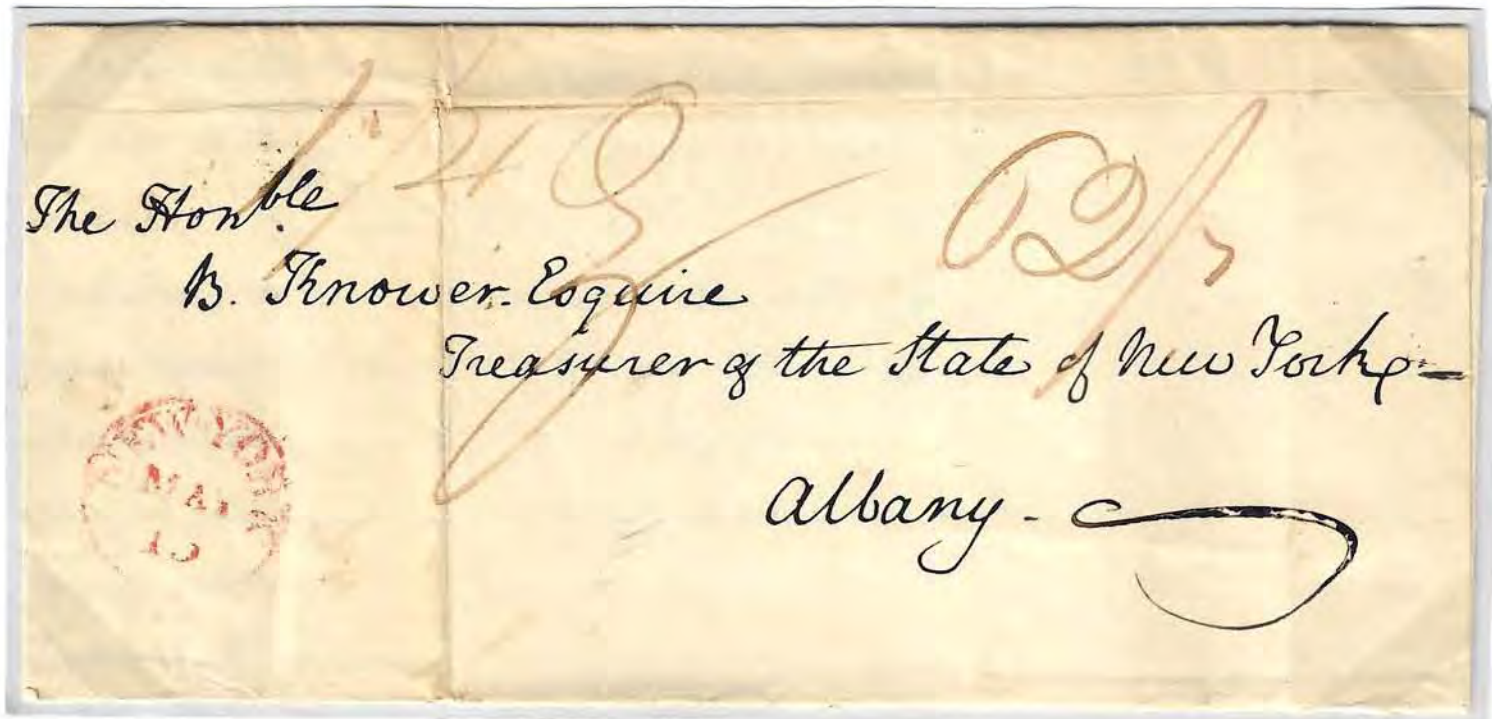 The Honble.
B. Knower. Esquire
Treasurer of the State of New York
Albany -
NEW-YORK
MAY
62/